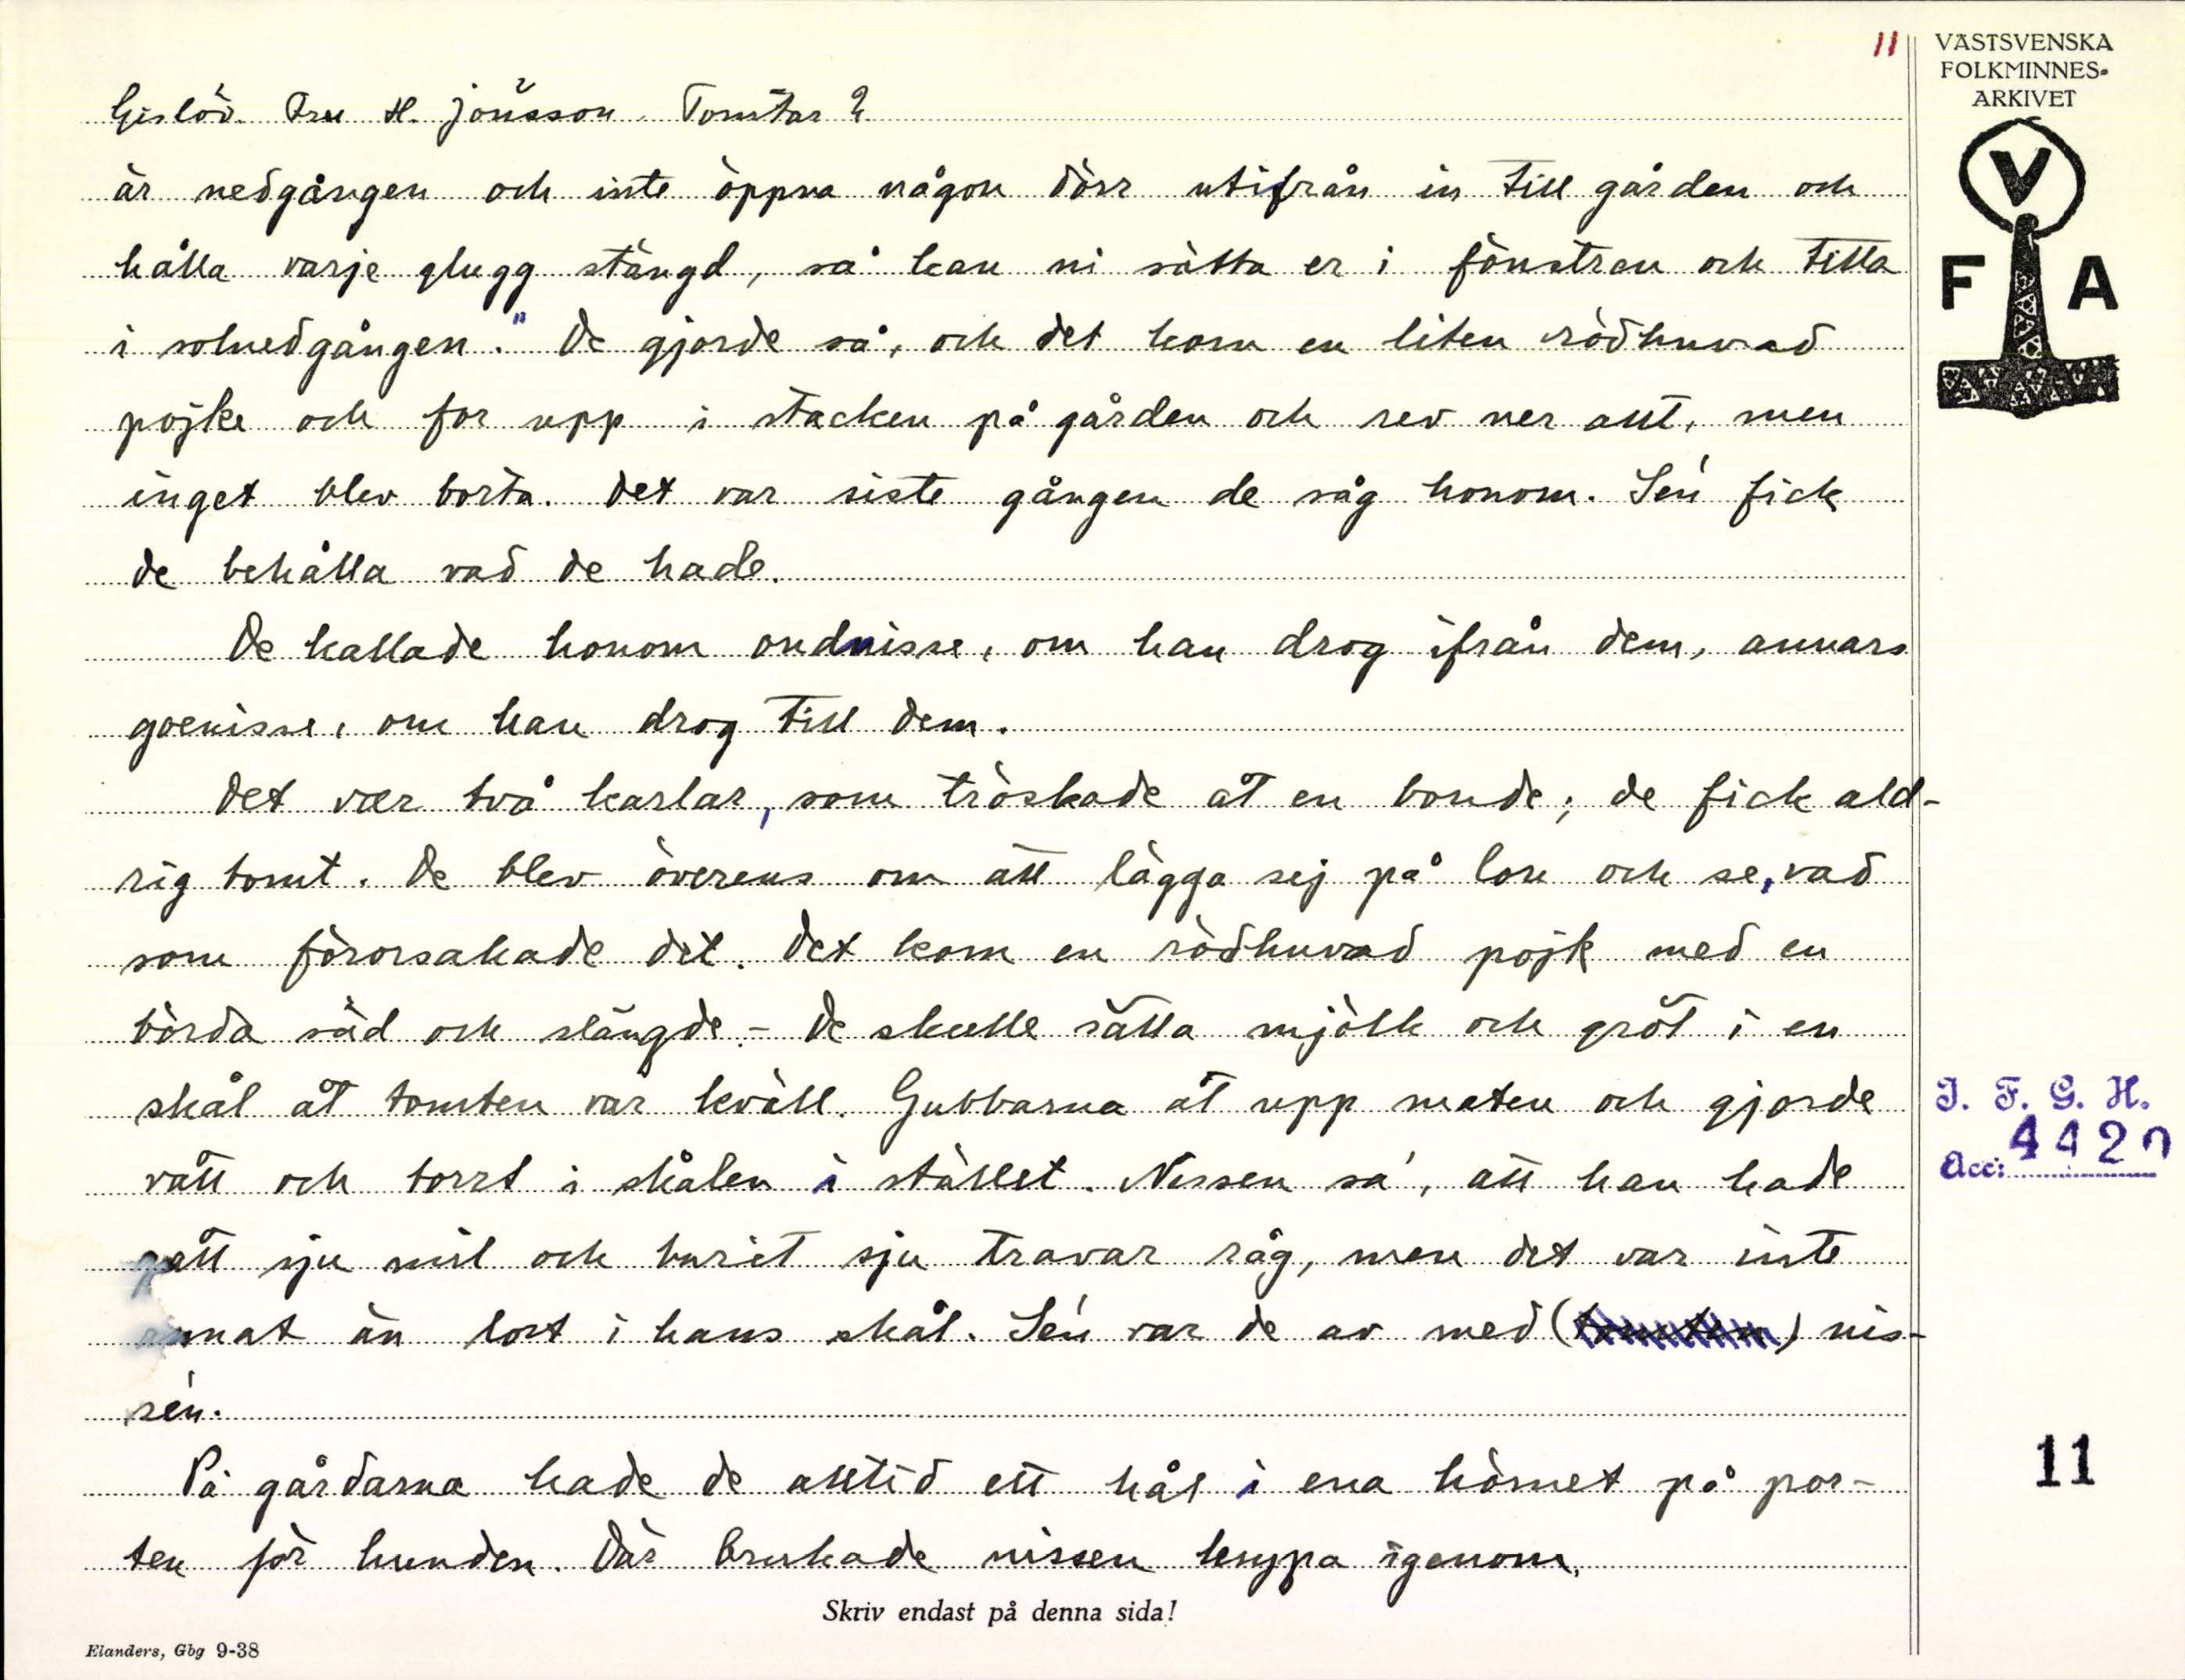 11
VÄSTSVENSKA
FOLKMINNES-
ARKIVET
V
F A
Gislöv. Fru H. Jönsson. Tomtar 2
är nedgången och inte öppna någon dörr utifrån in till gården och
hålla varje glugg stängd, så kan ni sätta er i fönstren och titta
i solnedgången." De gjorde så, och det kom en liten rödhuvad
pojke och for upp i stacken på gården och rev ner allt, men
inget blev borta. Det var siste gången de såg honom. Sén fick
de behålla vad de hade.
De kallade honom ondnisse, om han drog ifrån dem, annars
goenisse, om han drog till dem.
Det var två karlar, som tröskade åt en bonde; de fick ald-
rig tomt. De blev överens om att lägga sej på lon och se, vad
som förorsakade det. Det kom en rödhuvad pojk med en
börda säd och slängde. - De skulle sätta mjölk och gröt i en
skål åt tomten var kväll. Gubbarna åt upp maten och gjorde
vått och torrt i skålen i stället. Nissen sa', att han hade
gått sju mil och burit sju travar råg, men det var inte
annat än lort i hans skål. Sén var de av med (tomten) nis-
sén.
På gårdarna hade de alltid ett hål i ena hörnet på por-
ten för hunden. Där brukade nissen krypa igenom.
J. F. G. H.
Acc: 4420
11
Skriv endast på denna sida!
Elanders, Gbg 9-38